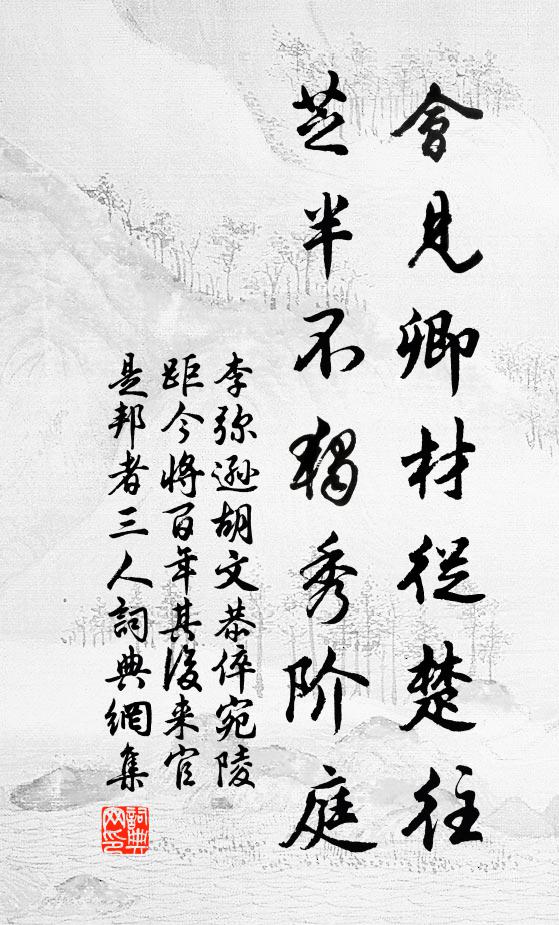 會見卿材從楚往
芝半不独秀阶庭
李弥逊胡文恭倅宛陵
距今将百年其後来官
是邦者三人詞典網集
詞典
网印